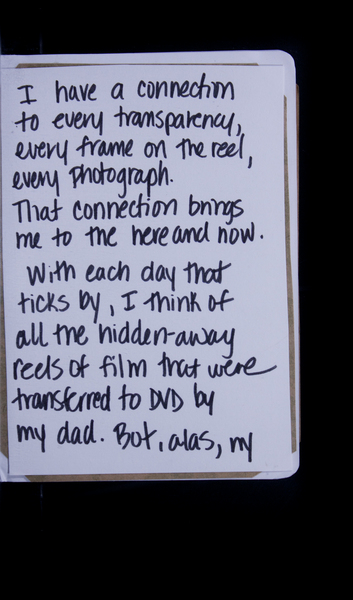 I have a connection
to every transparency,
every frame on the reel,
every photograph.
That connection brings
me to the here and now.
With each day that
ticks by, I think of
all the hidden-away
reels of film that were
transferred to DVD by
my dad. But, alas, my